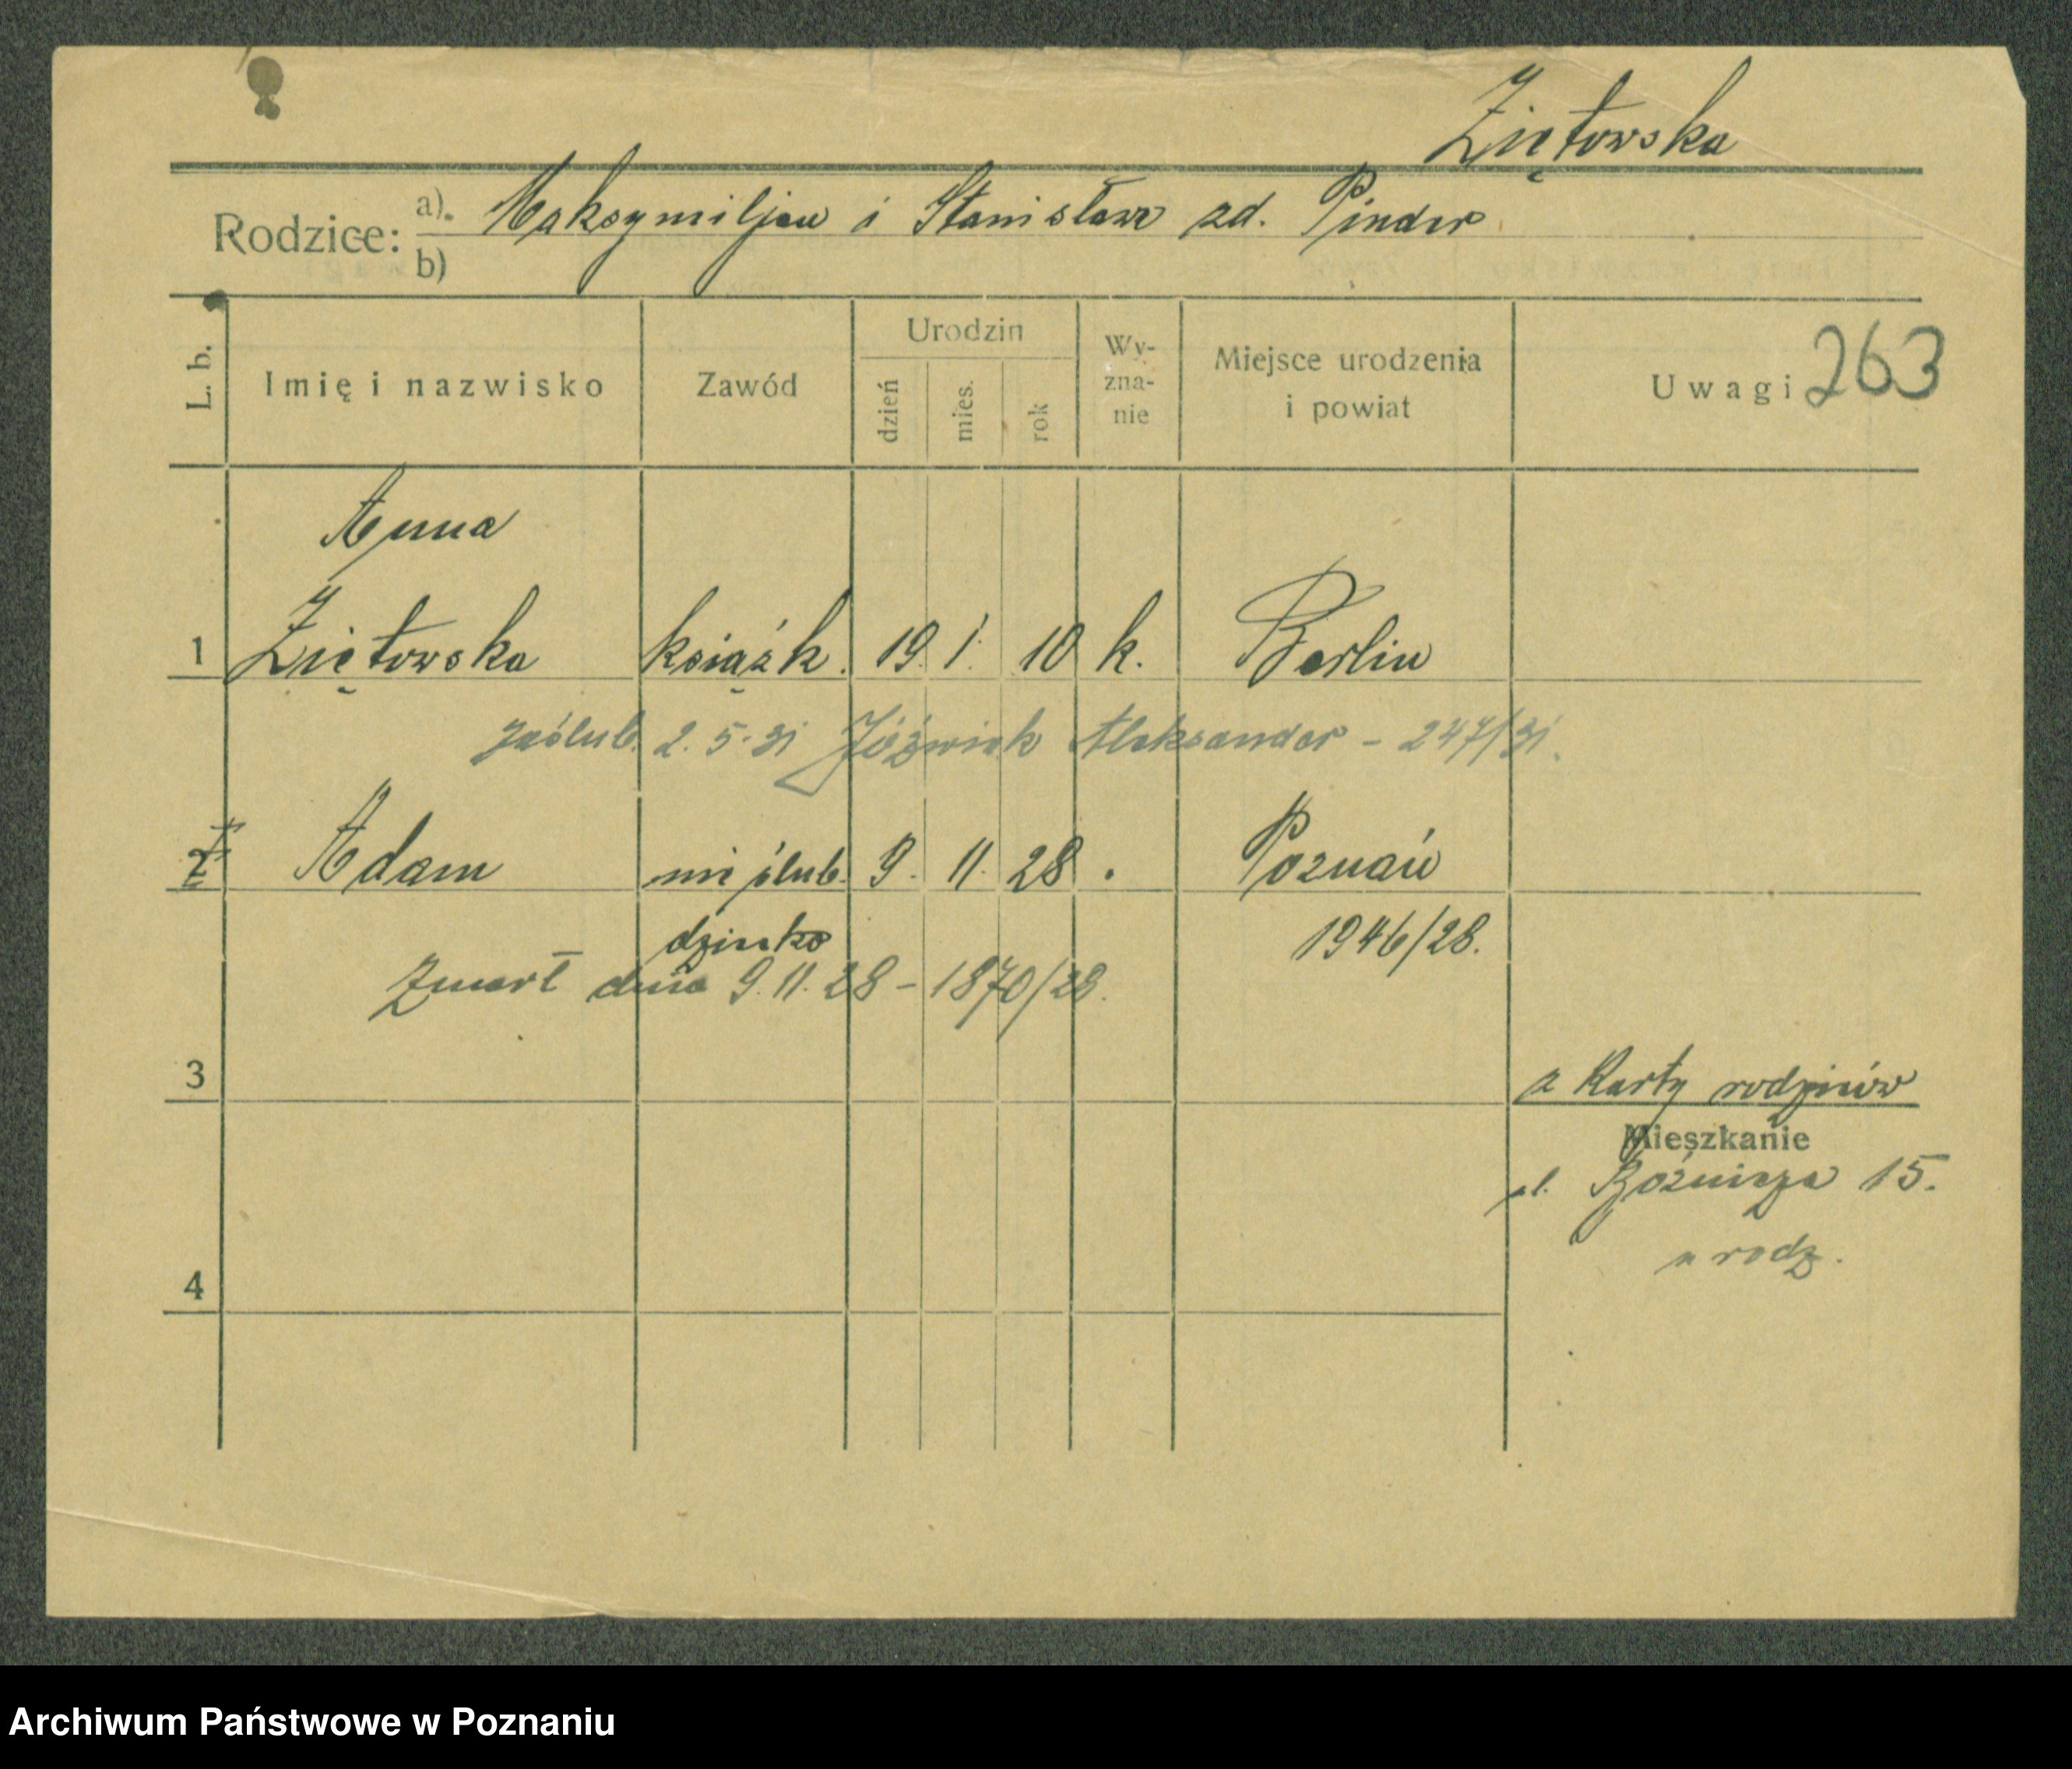 Ziętowska
Rodzice: a). Maksymiljan i Stanisława zd. Pinder
b)
L. b. Imię i nazwisko Zawód Urodzin dzień mies. rok Wy-zna-nie Miejsce urodzenia i powiat Uwagi 263
Anna
1 Ziętowska książk. 19. 1. 10 k. Berlin
zaślub. 2. 5. 31 Jóźwiak Aleksander - 247/31.
2 Adam nieślub. 9. 11. 28 Poznań
dziecko 1946/28.
Zmarł dnia 9. 11. 28 - 1870/28.
3
z Karty rodziców
Mieszkanie
ul. Bóżnicza 15.
u rodz.
4
Archiwum Państwowe w Poznaniu